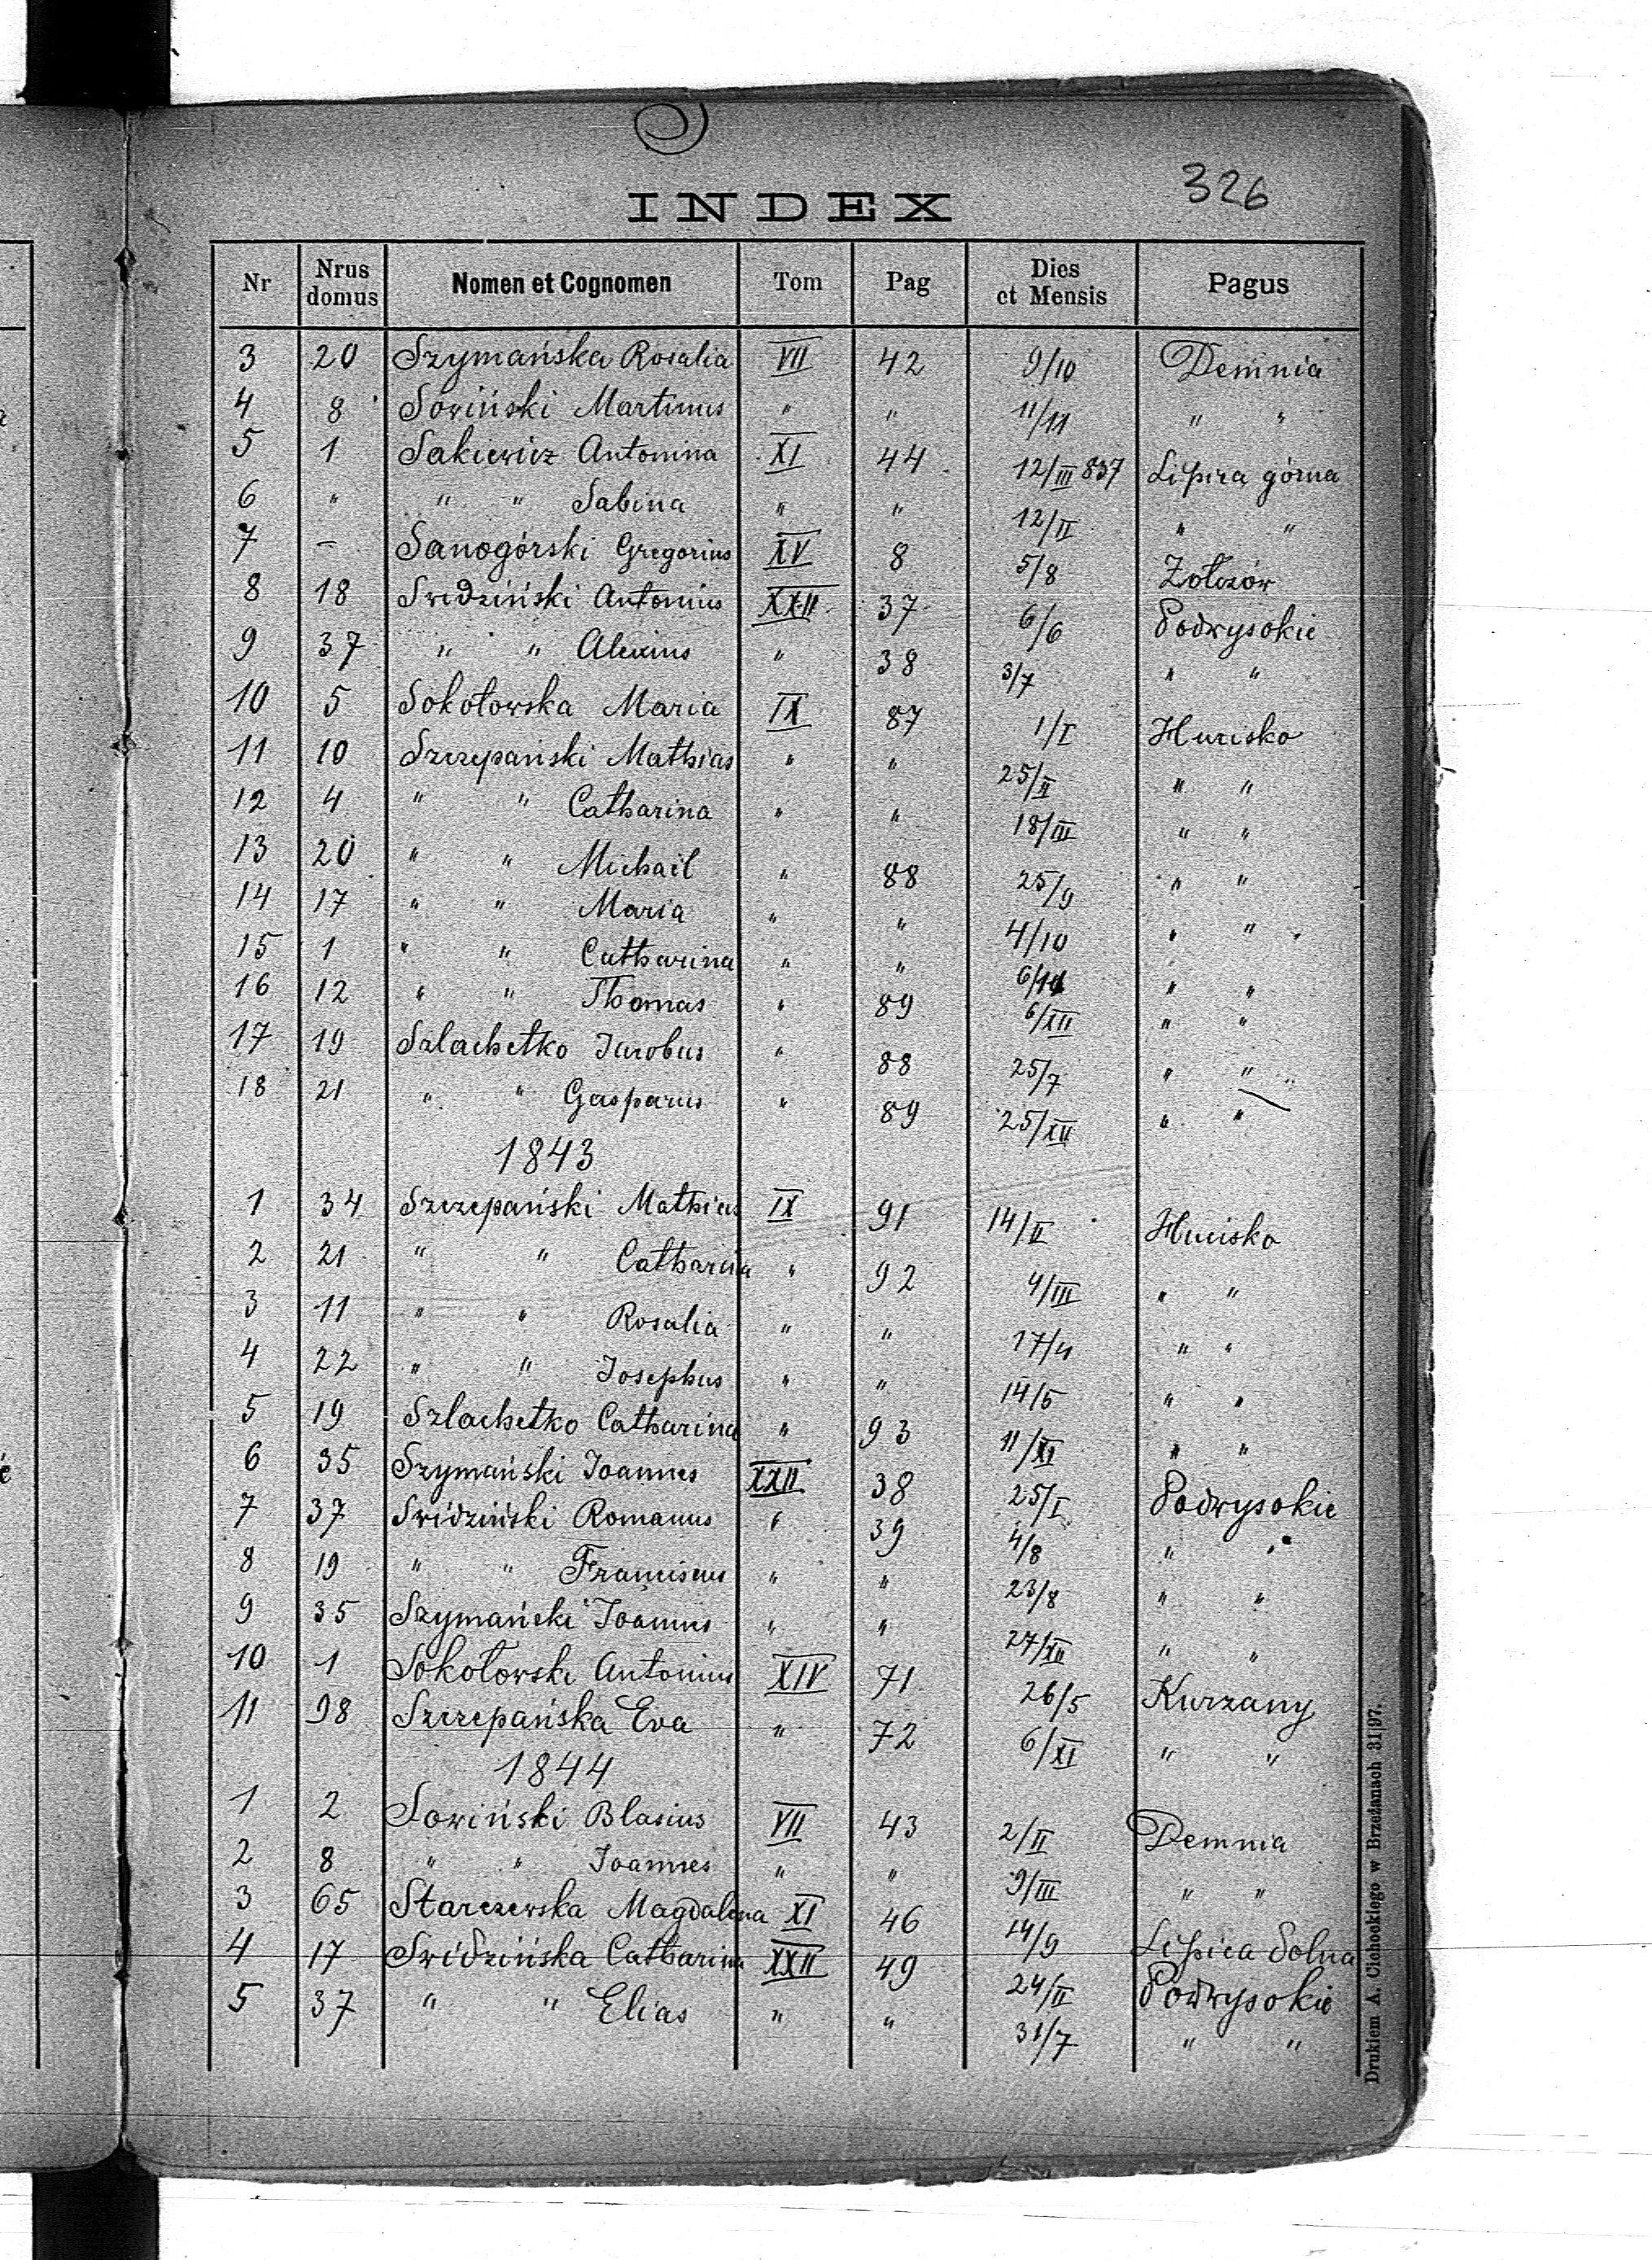 326
INDEX
Nr Nrus domus Nomen et Cognomen Tom Pag Dies et Mensis Pagus
3 20 Szymańska Rosalia VII 42 9/10 Demnia
4 8 Sowiński Martinus " " 11/11 " "
5 1 Sakiewicz Antonina XI 44 12/III 837 Lipica górna
6 " " " Sabina " " 12/II " "
7 – Sanogórski Gregorius XV 8 5/8 Zołczów
8 18 Swidziński Antonius XXII 37 6/6 Podwysokie
9 37 " " Alexius " 38 3/7 " "
10 5 Sokołowska Maria IX 87 1/I Hucisko
11 10 Szczepański Mathias " " 25/II " "
12 4 " " Catharina " " 18/III " "
13 20 " " Michaël " 88 25/9 " "
14 17 " " Maria " " 4/10 " "
15 1 " " Catharina " " 6/10 " "
16 12 " " Thomas " 89 6/XII " "
17 19 Szlachetko Jacobus " 88 25/7 " "
18 21 " " Gasparus " 89 25/XII " "
1843
1 34 Szczepański Mathias IX 91 14/II Hucisko
2 21 " " Catharina " 92 4/III " "
3 11 " " Rosalia " " 17/4 " "
4 22 " " Josephus " " 14/5 " "
5 19 Szlachetko Catharina " 93 11/XI " "
6 35 Szymański Joannes XXII 38 25/I Podwysokie
7 37 Swidziński Romanus " 39 4/8 " "
8 19 " " Franciscus " " 23/8 " "
9 35 Szymański Joannes " " 27/XII " "
10 1 Sokołowski Antonius XIV 71 26/5 Kurzany
11 98 Szczepańska Eva " 72 6/XI " "
1844
1 2 Sowiński Blasius VII 43 2/II Demnia
2 8 " " Joannes " " 9/III " "
3 65 Starczewska Magdalena XI 46 14/9 Lipica dolna
4 17 Swidzińska Catharina XXII 49 24/II Podwysokie
5 37 " " Elias " " 31/7 " "
Drukiem A. Cichockiego w Brzeżanach 31|97.